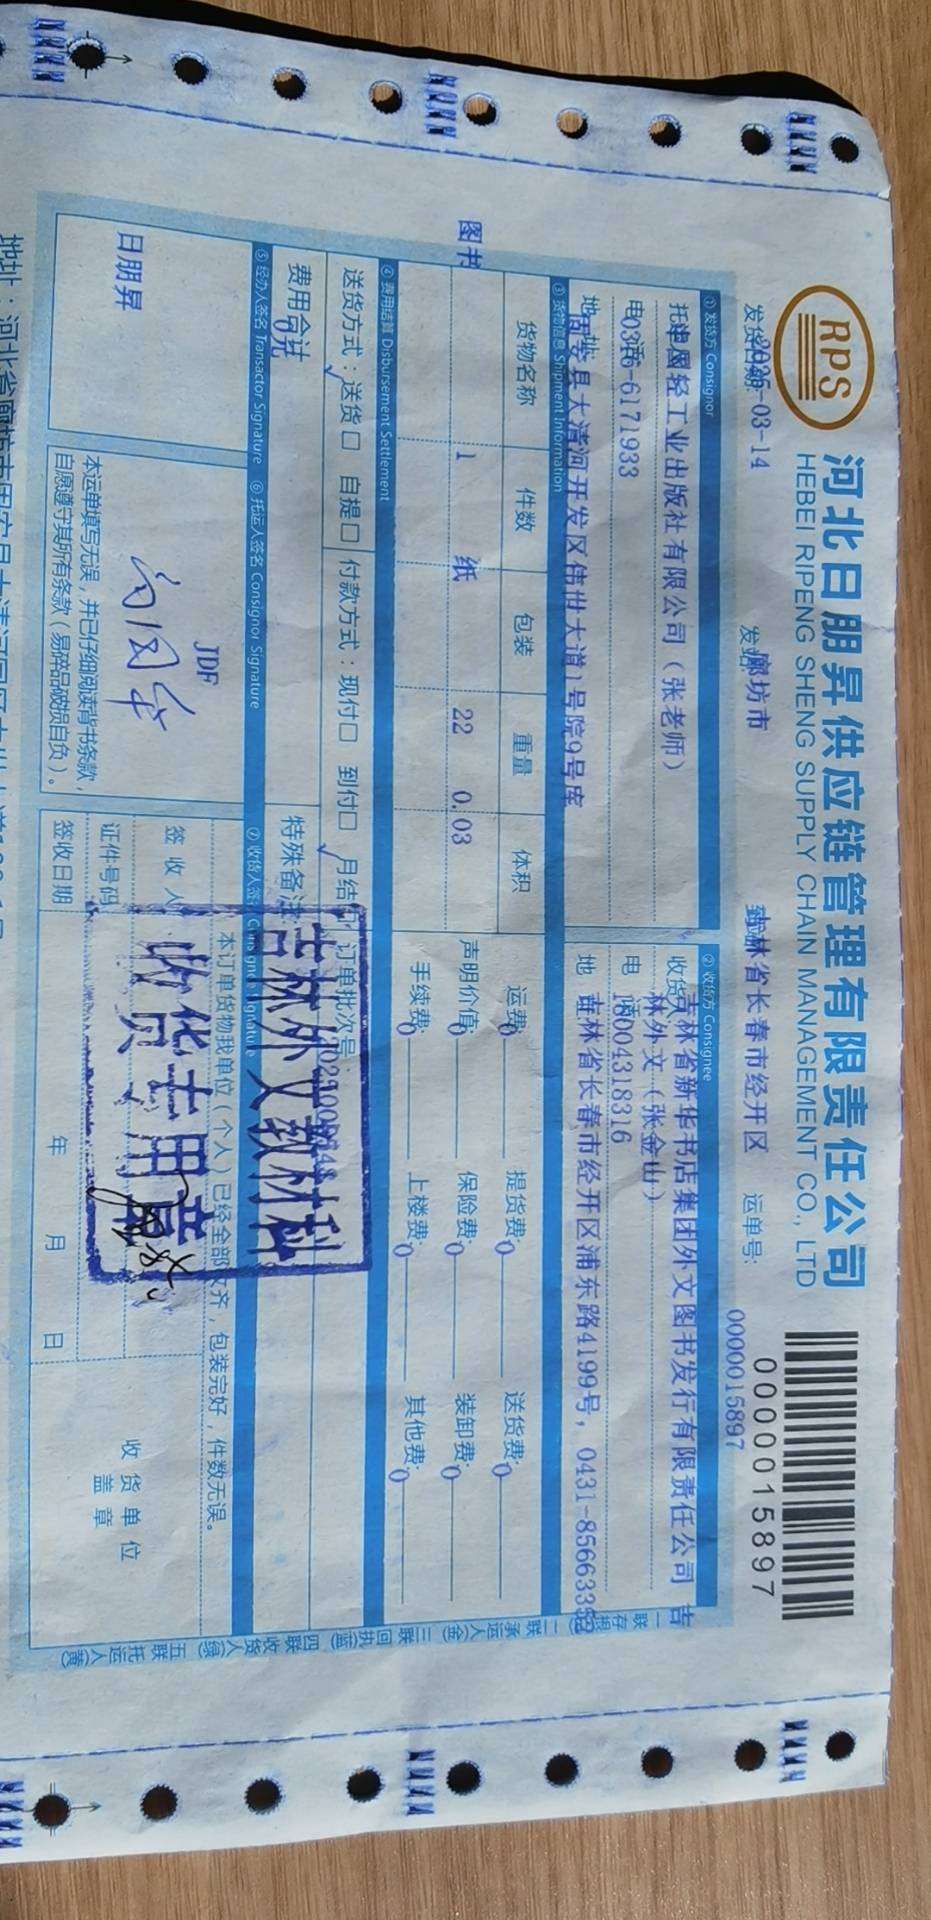 RPS
河北日朋昇供应链管理有限责任公司
HEBEI RIPENG SHENG SUPPLY CHAIN MANAGEMENT CO., LTD
0000015897
发货日期: 2025-03-14 发站: 廊坊市 到站: 吉林省长春市经开区 运单号: 0000015897
① 发货方 Consignor
② 收货方 Consignee
中国轻工业出版社有限公司（张老师）
收货 吉林省新华书店集团外文图书发行有限责任公司 吉
林外文（张金山）
电话 0316-6171933
电话 18004318316
地址 固安县大清河开发区伟世大道1号院9号库
地 吉林省长春市经开区浦东路4199号, 0431-856633
③ 货物信息 Shipment Information
货物名称 件数 包装 重量 体积
图书 1 纸 22 0.03
运费: 0 提货费: 0 送货费: 0
声明价值: 0 保险费: 0 装卸费: 0
手续费: 0 上楼费: 0 其他费: 0
④ 费用结算 Disbursement Settlement
送货方式: 送货□ 自提□ 付款方式: 现付□ 到付□ 月结 订单批次号:
费用合计 0元
特殊备注
⑤ 经办人签名 Transactor Signature ⑥ 托运人签名 Consignor Signature
⑦ 收货人签 Consignee Signature
日朋昇
JDF
本运单填写无误，并已仔细阅读背书条款，
自愿遵守其所有条款（易碎品破损自负）。
本订单货物我单位（个人）已经全部收齐，包装完好，件数无误。
签收人
证件号码
签收日期 年 月 日
收货单位
盖章
吉林外文教材科
收货专用章
一联存根 二联承运人(金) 三联回执(蓝) 四联收货人(绿) 五联托运人(黄)